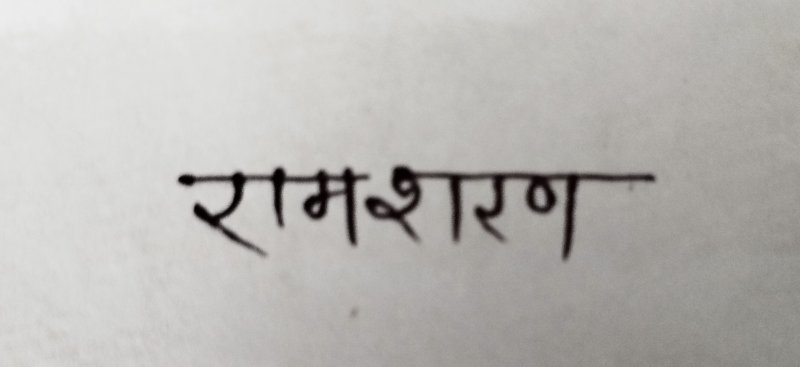 रामशरण